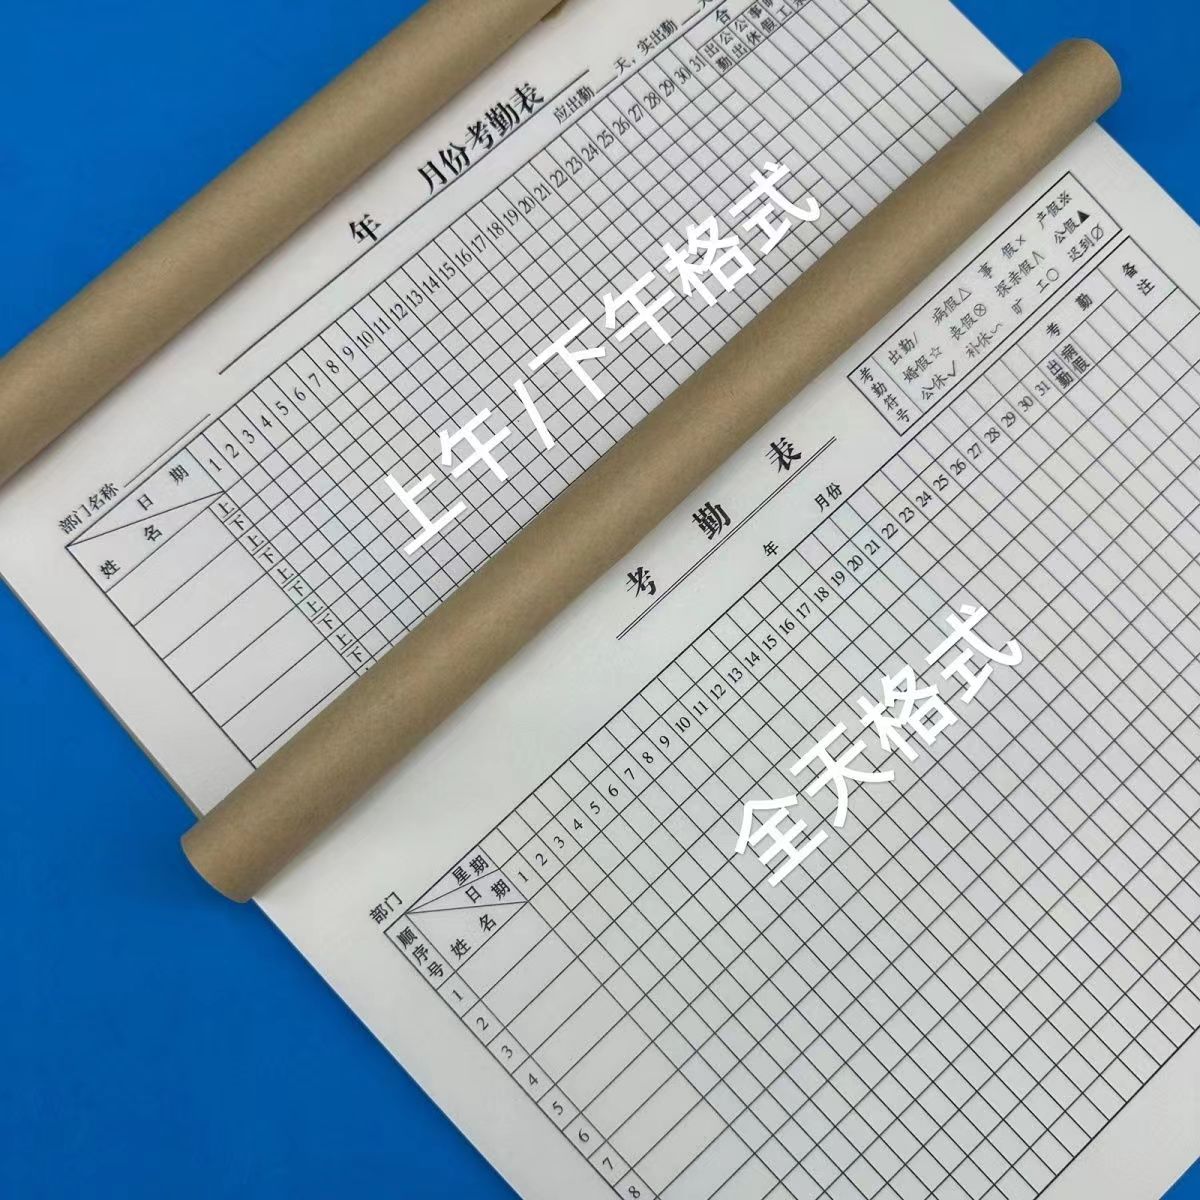 年 月份考勤表
部门名称 应出勤 天，实出勤 天
日期 1 2 3 4 5 6 7 8 9 10 11 12 13 14 15 16 17 18 19 20 21 22 23 24 25 26 27 28 29 30 31 出勤 公出 公休 事假
姓名
上
下
上
下
上
下
上
下
上
下
上午/下午格式
考勤表
年 月份
考勤符号
出勤/ 病假△ 事假× 产假※
婚假☆ 丧假⊗ 探亲假∧ 公假▲
公休✓ 补休∽ 旷工○ 迟到∅
部门
顺序号
星期 考勤 备注
日期 1 2 3 4 5 6 7 8 9 10 11 12 13 14 15 16 17 18 19 20 21 22 23 24 25 26 27 28 29 30 31 出勤 病假
姓名
1
2
3
4
5
6
7
8
全天格式